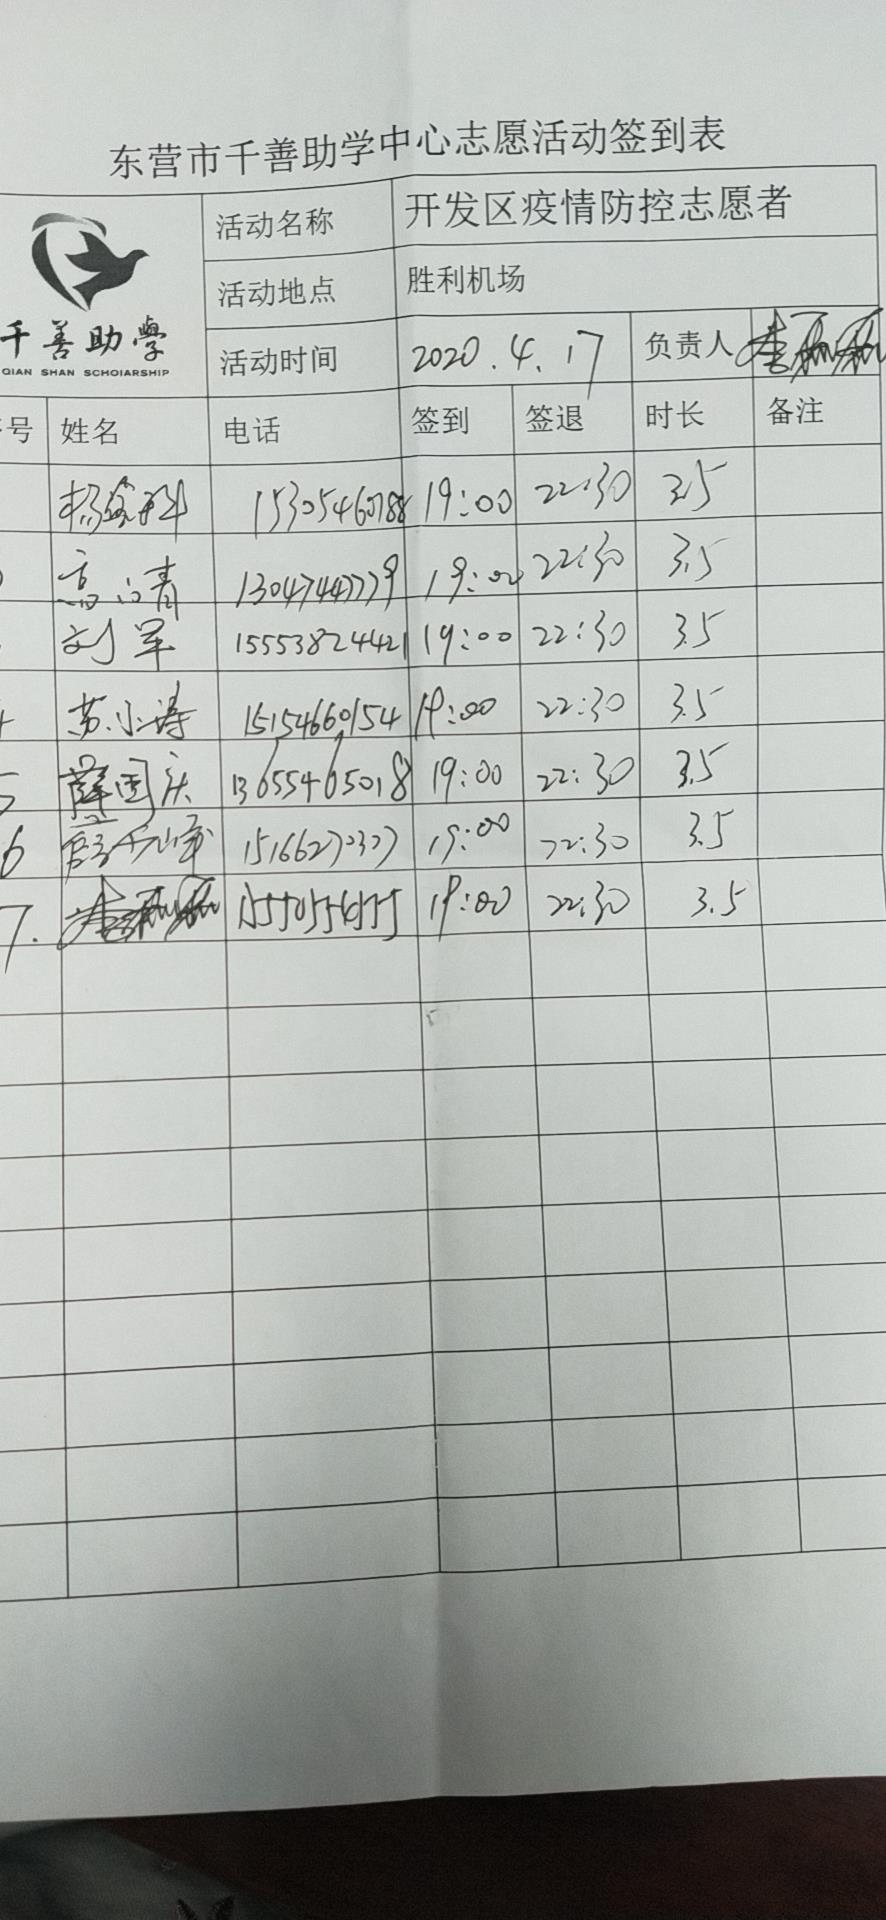 东营市千善助学中心志愿活动签到表
千善助學
QIAN SHAN SCHOIARSHIP
活动名称 开发区疫情防控志愿者
活动地点 胜利机场
活动时间 2020.4.17 负责人
号 姓名 电话 签到 签退 时长 备注
15305460788 19:00 22:30 3.5
13047447779 19:00 22:30 3.5
刘军 15553824421 19:00 22:30 3.5
4 苏小涛 15154660154 19:00 22:30 3.5
5 薛国庆 13655465018 19:00 22:30 3.5
6 15166270327 19:00 22:30 3.5
7. 19:00 22:30 3.5